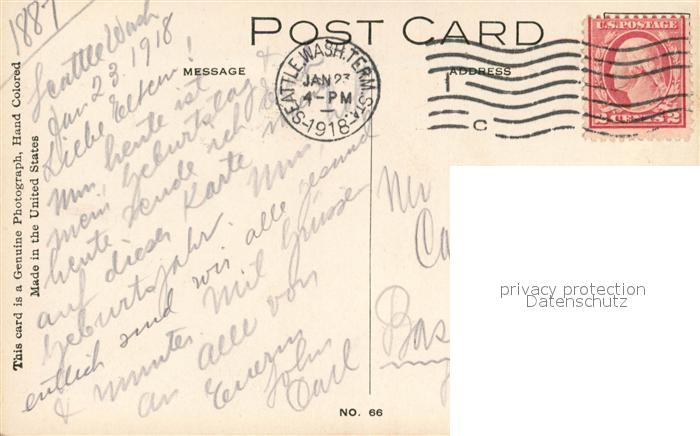 1887
POST CARD
MESSAGE
ADDRESS
SEATTLE, WASH. TERM. STA.
JAN 23
4-PM
1918
C
U.S. POSTAGE
2 CENTS 2
This card is a Genuine Photograph, Hand Colored
Made in the United States
Seattle Wash
Jan 23. 1918
Liebe Eltern!
Nun heute ist
mein Geburtstag &
heute sende ich
auf dieser Karte
Geburtsjahr. Nun
endlich sind wir alle gesund
& munter. Mit Grüssen
an alle von
Euerm
Sohn
Carl
Mr
Ca
Bas
privacy protection
Datenschutz
NO. 66